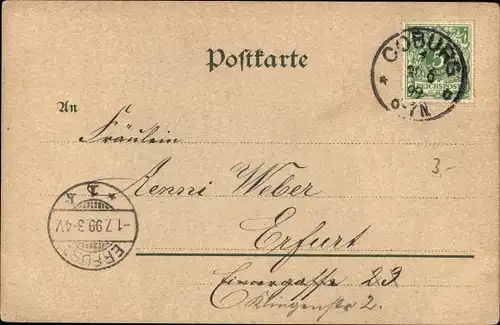 Postkarte
COBURG
30 6
99
6-7N
5
REICHSPOST
An
Fräulein
Aenni Weber
Erfurt
Eimergasse 23
Klingenstr 2.
3.-
ERFURT
-1.7.99.3-4V.